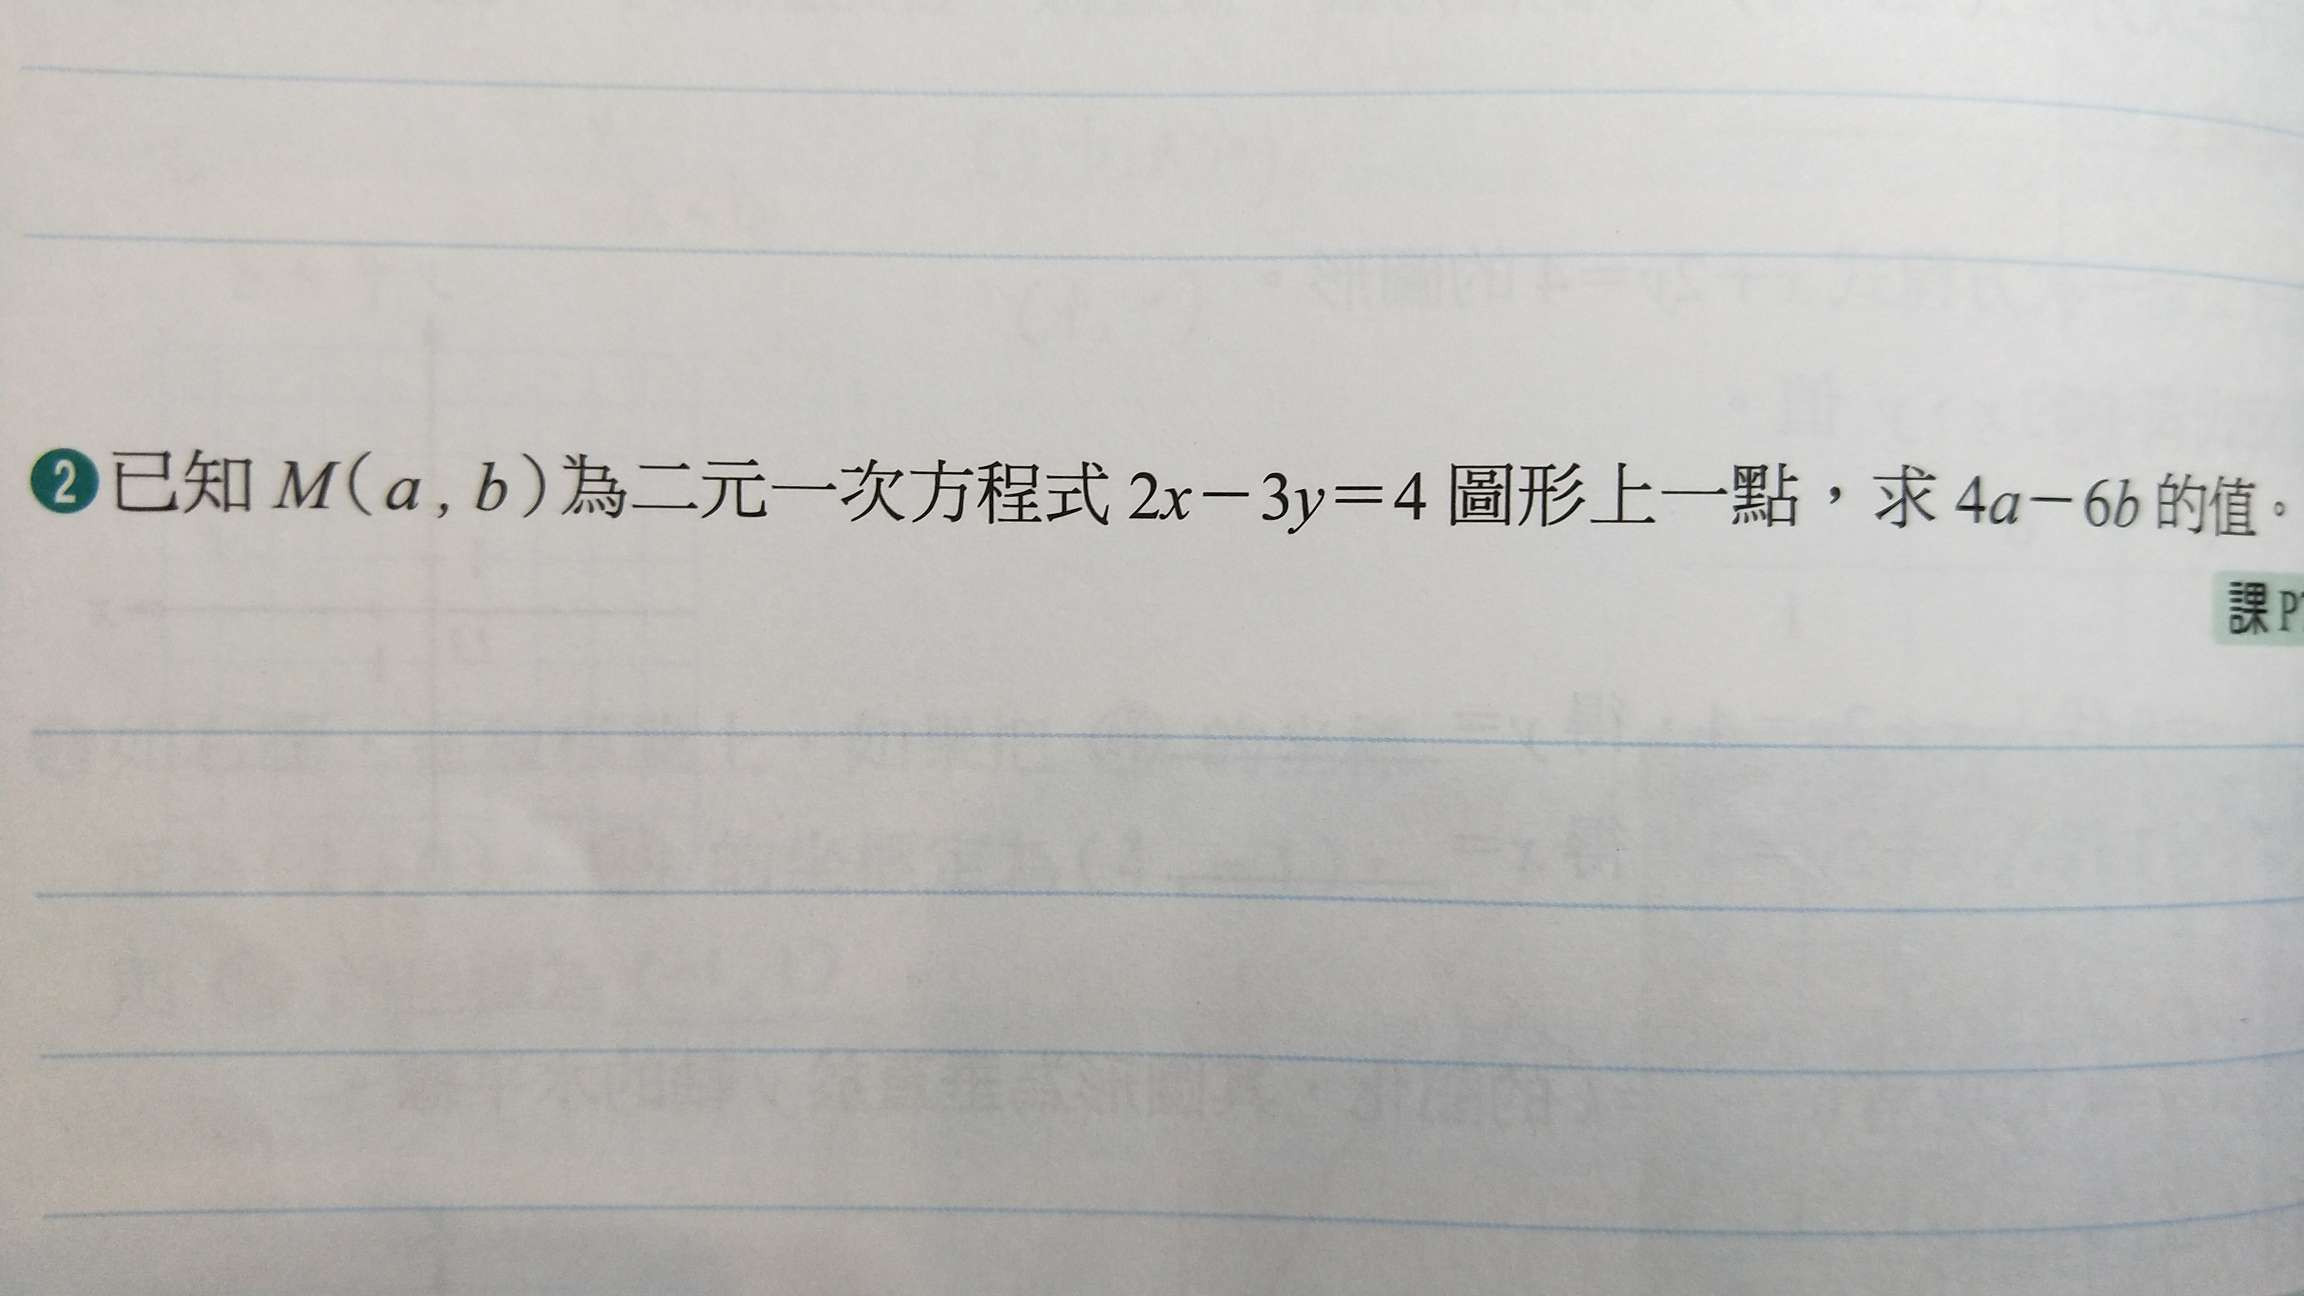 2 已知 M(a , b)為二元一次方程式 2x−3y=4 圖形上一點，求 4a−6b 的值。
課 P